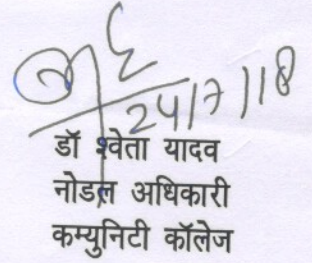 24/7/18
डॉ श्वेता यादव
नोडल अधिकारी
कम्युनिटी कॉलेज